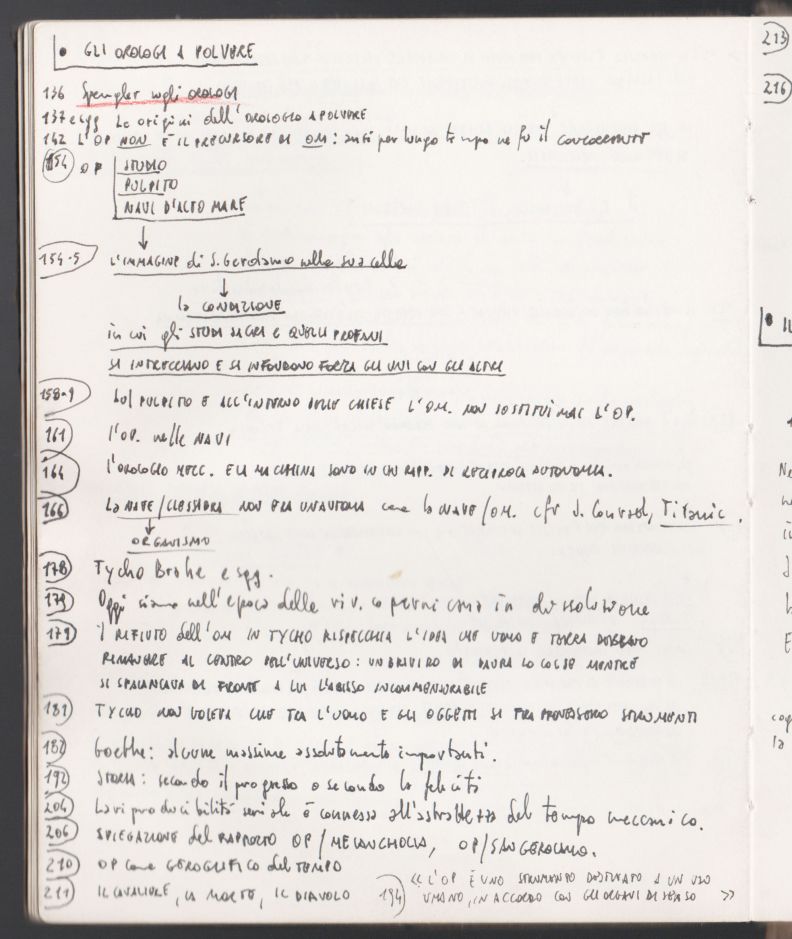 • GLI OROLOGI A POLVERE
136 Spengler sugli OROLOGI
137 e sgg Le origini dell'OROLOGIO A POLVERE
142 L'OP NON È IL PRECURSORE DI OM: anzi per lungo tempo ne fu il CONCORRENTE
154 OP STUDIO
PULPITO
NAVI D'ALTO MARE
↓
154-5 L'IMMAGINE di S. Gerolamo nella sua cella
↓
la CONDIZIONE
in cui gli STUDI SACRI E QUELLI PROFANI
SI INTRECCIANO E SI INFONDONO FORZA GLI UNI CON GLI ALTRI
158-9 Sul PULPITO E ALL'INTERNO DELLE CHIESE L'OM. NON SOSTITUÌ MAI L'OP.
161 l'OP. nelle NAVI
164 l'OROLOGIO MECC. E LA MACCHINA SONO IN UN RAPP. DI RECIPROCA AUTONOMIA.
166 La NAVE/CLESSIDRA NON ERA UN AUTOMA come la NAVE/OM. cfr J. Conrad, Titanic.
↓
ORGANISMO
178 Tycho Brahe e sgg.
179 Oggi siamo nell'epoca della riv. copernicana in dissoluzione
179 il RIFIUTO dell'OM IN TYCHO RISPECCHIA L'IDEA CHE UOMO E TERRA DEBBANO
RIMANERE AL CENTRO DELL'UNIVERSO: UN BRIVIDO DI PAURA LO COLSE MENTRE
SI SPALANCAVA DI FRONTE A LUI L'ABISSO INCOMMENSURABILE
181 TYCHO NON VOLEVA CHE TRA L'UOMO E GLI OGGETTI SI FRAPPONESSERO STRUMENTI
182 Goethe: alcune massime assolutamente importanti.
192 STORIA: secondo il progresso o secondo la felicità
204 La riproducibilità seriale è connessa all'astrattezza del tempo meccanico.
206 SPIEGAZIONE del RAPPORTO OP/MELANCHOLIA, OP/SAN GEROLAMO.
210 OP come GEROGLIFICO del TEMPO
211 IL CAVALIERE, LA MORTE, IL DIAVOLO
194 « L'OP È UNO STRUMENTO DESTINATO A UN USO
UMANO, IN ACCORDO CON GLI ORGANI DI SENSO »
213
216
•